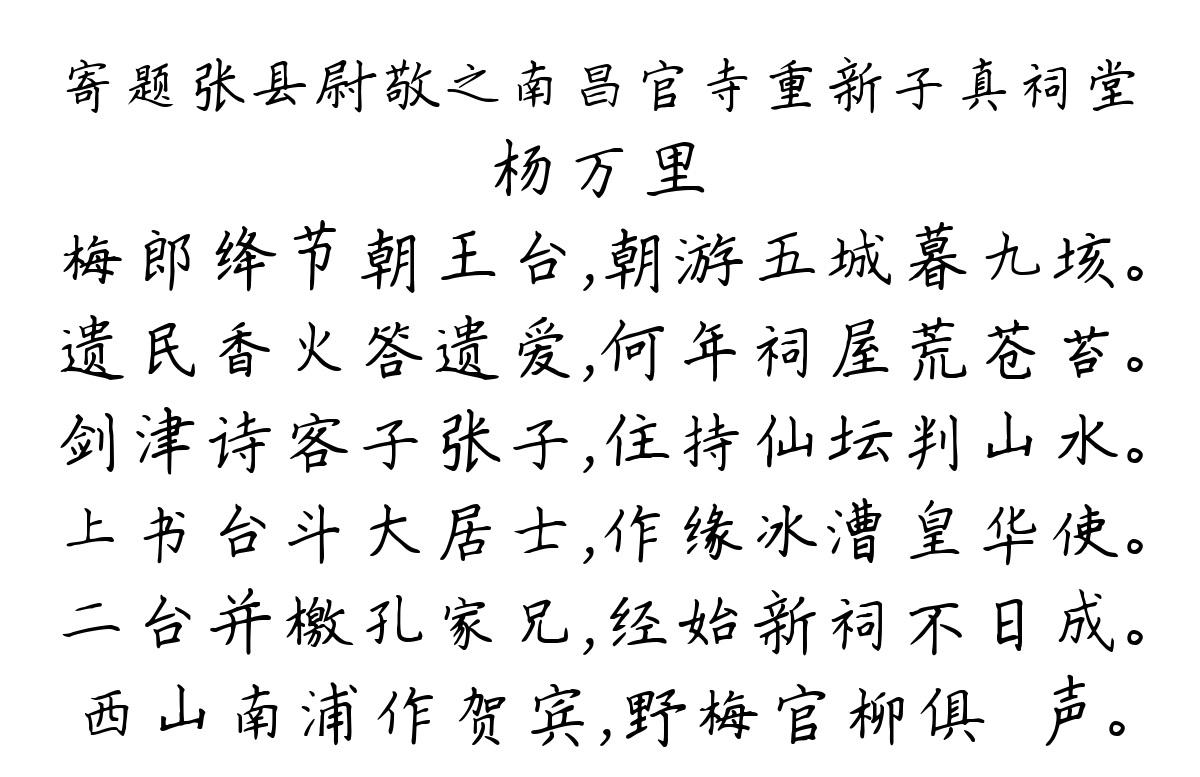 寄题张县尉敬之南昌官寺重新子真祠堂
杨万里
梅郎绛节朝王台,朝游五城暮九垓。
遗民香火答遗爱,何年祠屋荒苍苔。
剑津诗客子张子,住持仙坛判山水。
上书台斗大居士,作缘冰漕皇华使。
二台并檄孔家兄,经始新祠不日成。
西山南浦作贺宾,野梅官柳俱 声。